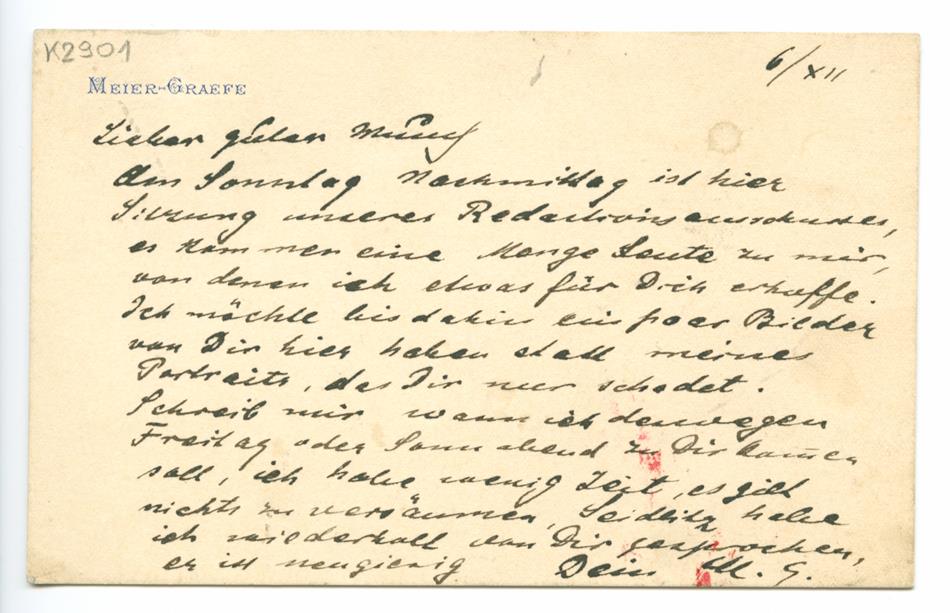 K2901
6/XII
MEIER-GRAEFE
Lieber guter Munch
Am Sonntag Nachmittag ist hier
Sitzung unseres Redactionsausschusses,
es kommen eine Menge Leute zu mir,
von denen ich etwas für Dich erhoffe.
Ich möchte bis dahin ein paar Bilder
von Dir hier haben statt meines
Portraits, das Dir nur schadet.
Schreib mir wann ich deswegen
Freitag oder Sonnabend zu Dir kom̄en
soll, ich habe wenig Zeit, es gilt
nichts zu versäumen, Seidlitz habe
ich wiederholt von Dir gesprochen,
er ist neugierig Dein M. G.